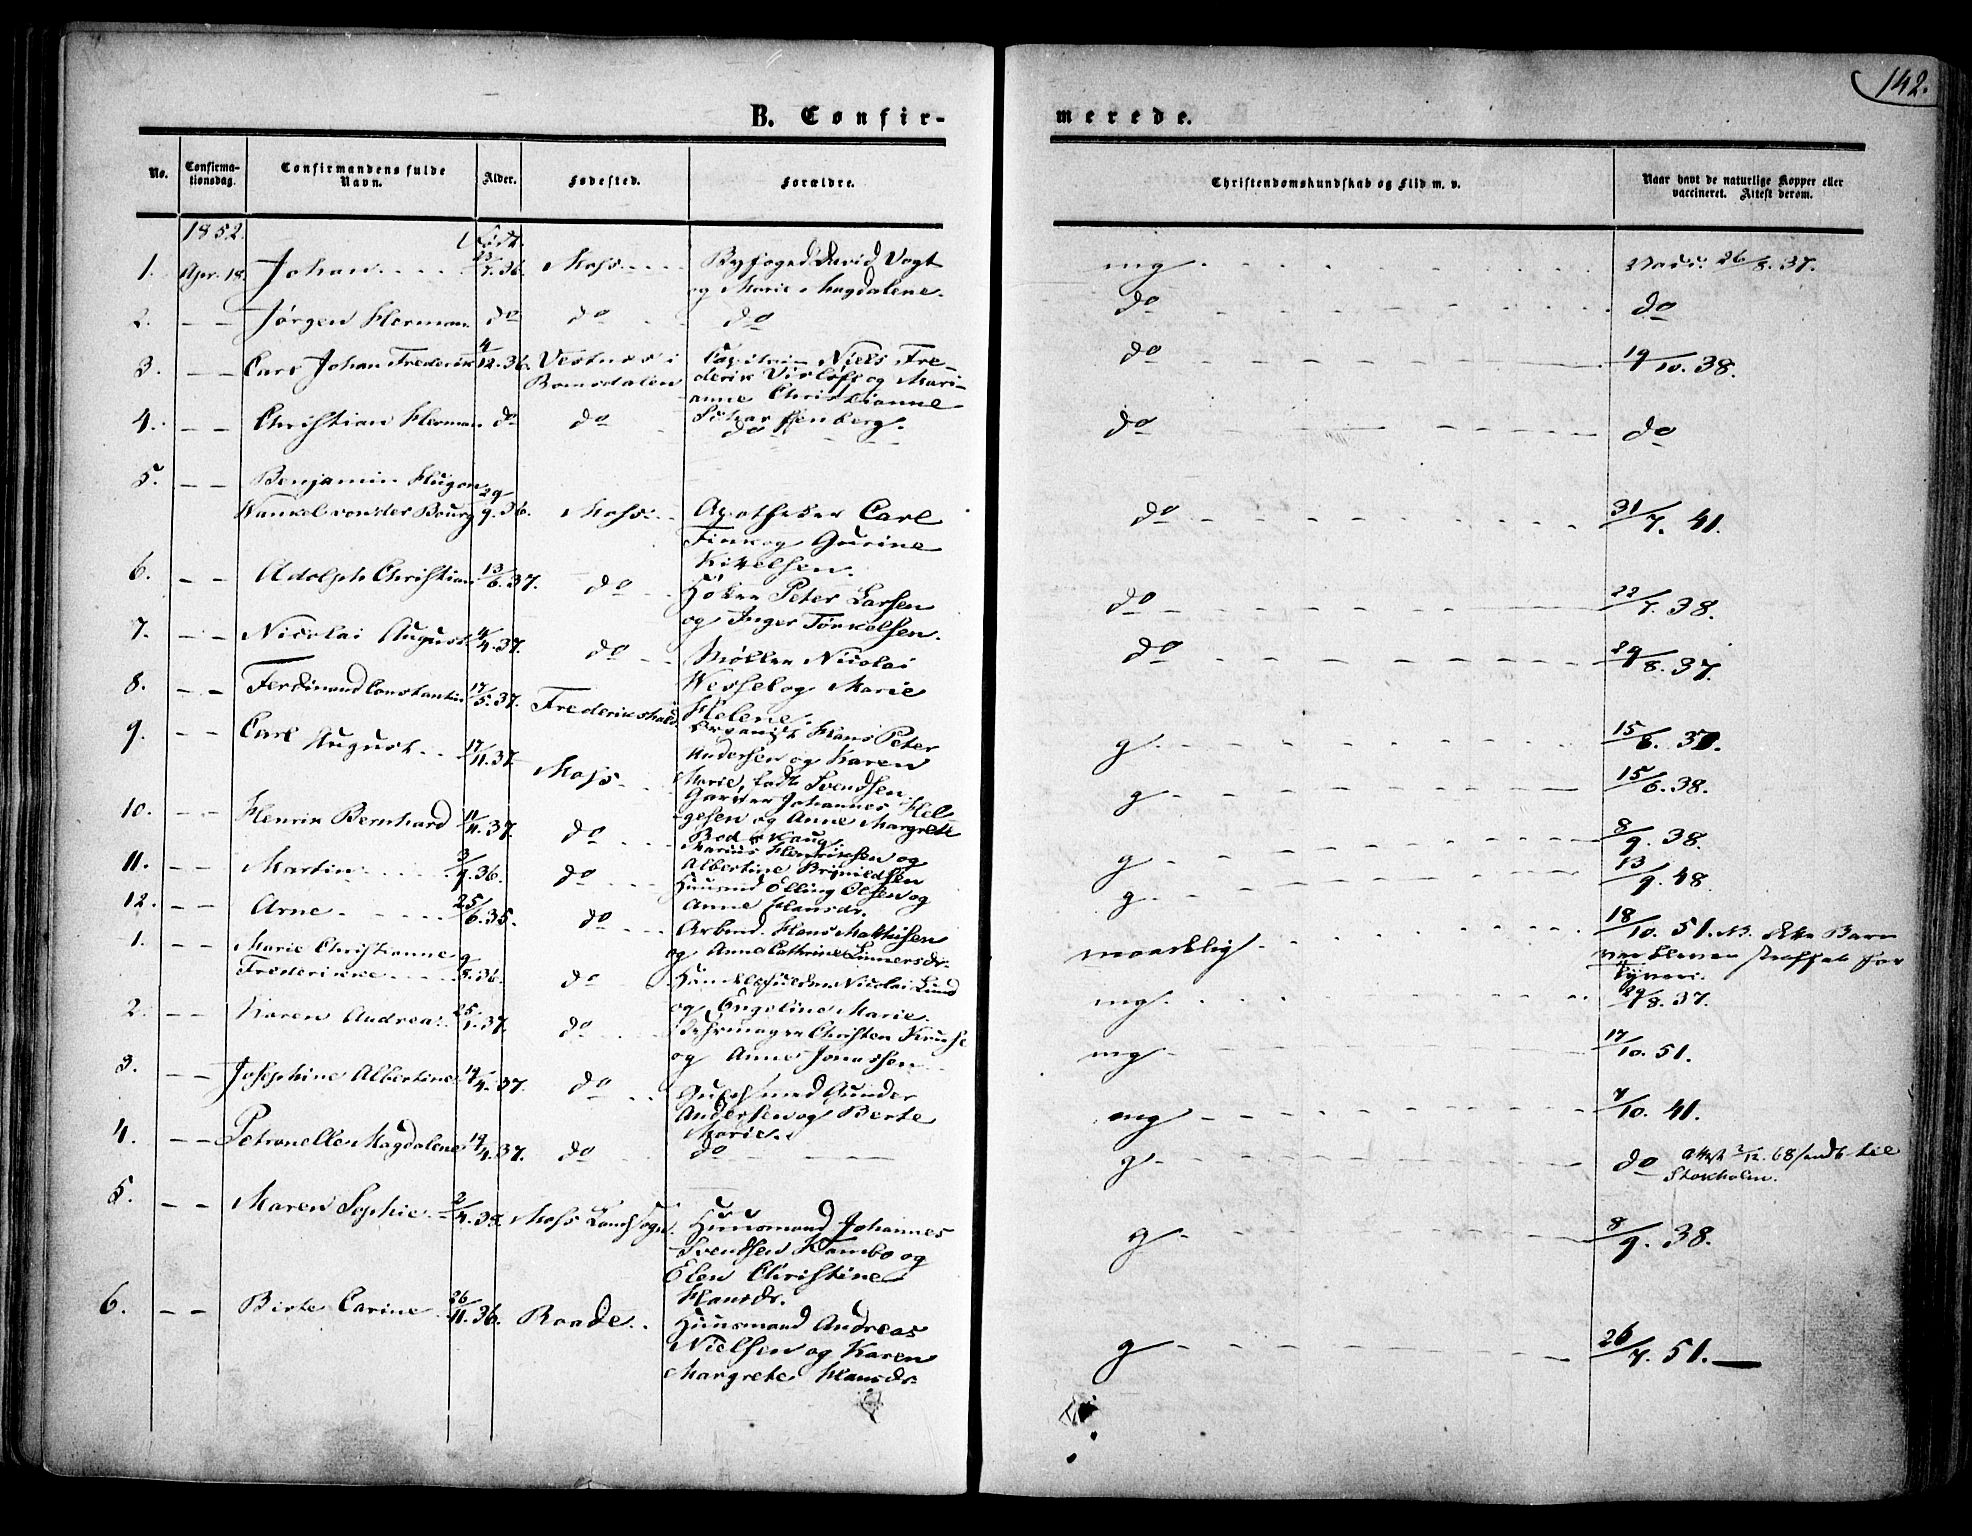 142.
B. Confirmerede.
No. Confirmationsdag. Confirmandens fulde Navn. Alder. Fødested. Forældre. Christendomskundskab og Flid m. v. Naar havt de naturlige Kopper eller vaccineret. Attest derom.
1852. Født.
1. Apr. 18. Johan 7.36. Moss Byfoged David Vogt mg Vacc. 26/8.37.
og Marie Magdalene.
2. – – Jørgen Herman do do do do do
3. – – Carl Johan Frederik 4/12.36. Vestnes i Capitain Niels Fre- do 19/10.38.
Romsdalen derik og Mari-
anne Christianne
4. – – Christian Herman do do do do do
5. – – Benjamin Hugo
Wankel von der Bourg 29/9.36. Moss Apotheker Carl do 31/7. 41.
og Gurine
Kittelsen.
6. – – Adolph Christian 13/6.37. do Høker Peter Larsen do 22/7.38.
og Inger Tørkelsen.
7. – – Nicolai August 4/4.37. do Møller Nicolai do 29/8.37.
Wessel og Marie
Helene.
8. – – Ferdinand Constantin 17/5.37. Frederikshald Hans Peter g 15/8.
Andersen og Karen
Marie, født Svendsen.
9. – – Carl August 17/11.37. Moss Garver Johannes Hel- g 15/6.38.
gesen og Anne Margrete
10. – – Henrik Bernhard 11/11.37. do Marius Henriksen og g 8/9.38.
Albertine Brynildsen
11. – – Martin 3/9.36. do Huusmd Elling Olsen og g 13/9.48.
Anne Hansdr.
12. – – Arne 25/6.35. do Arbmd. Hans Mathisen maadelig 18/10.51. NB. dette Barn
og Anne Cathrine Gunnersdr. var bleven straffet for
Tyveri.
1. Marie Christianne
Frederikke 9/8.36. do Nicolai Lund mg 29/8.37.
og Engeline Marie.
2. – – Karen Andrea 25/1.37. do Christen Kruse mg 17/10.51.
og Anne Jonassen
3. – – Josephine Albertine 19/4.37. do Gunder mg 7/10.41.
Andersen og Berte
Marie.
4. – – Petronelle Magdalene 19/4.37. do do g do Attest 2/12.68 sendt til
Stokholm.
5. – – Maren Sophie 2/4. Moss Landsogn. Huusmand Johannes g 8/9.38.
Svendsen Kambo og
Elen Christine
Hansdr.
6. – – Birte Carine 26/11.36. Raade Huusmand Andreas g 26/7.51.
Nielsen og Karen
Margrete Hansdr.